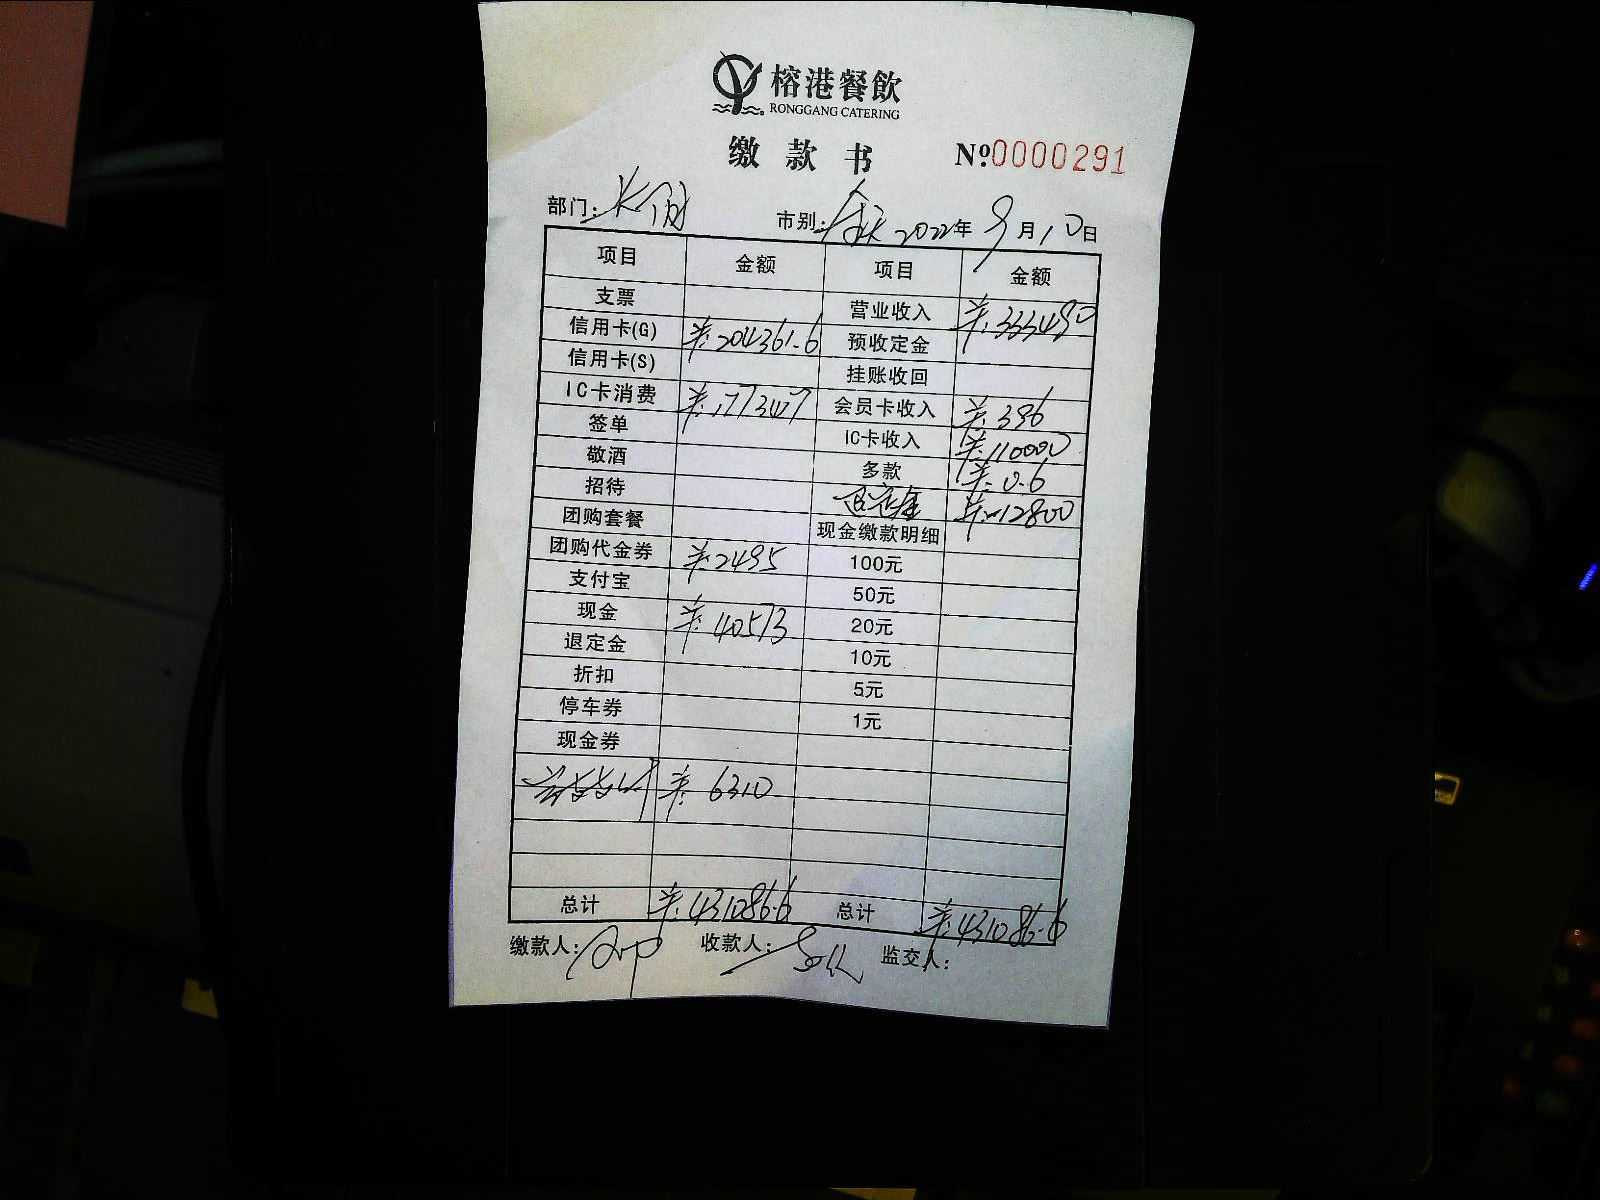 榕港餐飲
RONGGANG CATERING
缴款书 №0000291
部门: 市别: 全天 2022年 9月10日
项目 金额 项目 金额
支票 营业收入 ¥:333490
信用卡(G) ¥:204361.6 预收定金
信用卡(S) 挂账收回
IC卡消费 ¥:177347 会员卡收入 ¥:396
签单 IC卡收入 ¥:110000
敬酒 多款 ¥:0.6
招待 退定金 ¥:-12800
团购套餐 现金缴款明细
团购代金券 ¥:2495 100元
支付宝 50元
现金 ¥:40573 20元
退定金 10元
折扣 5元
停车券 1元
现金券
¥:6310
总计 ¥:431086.6 总计 ¥:431086.6
缴款人: 收款人: 监交人: